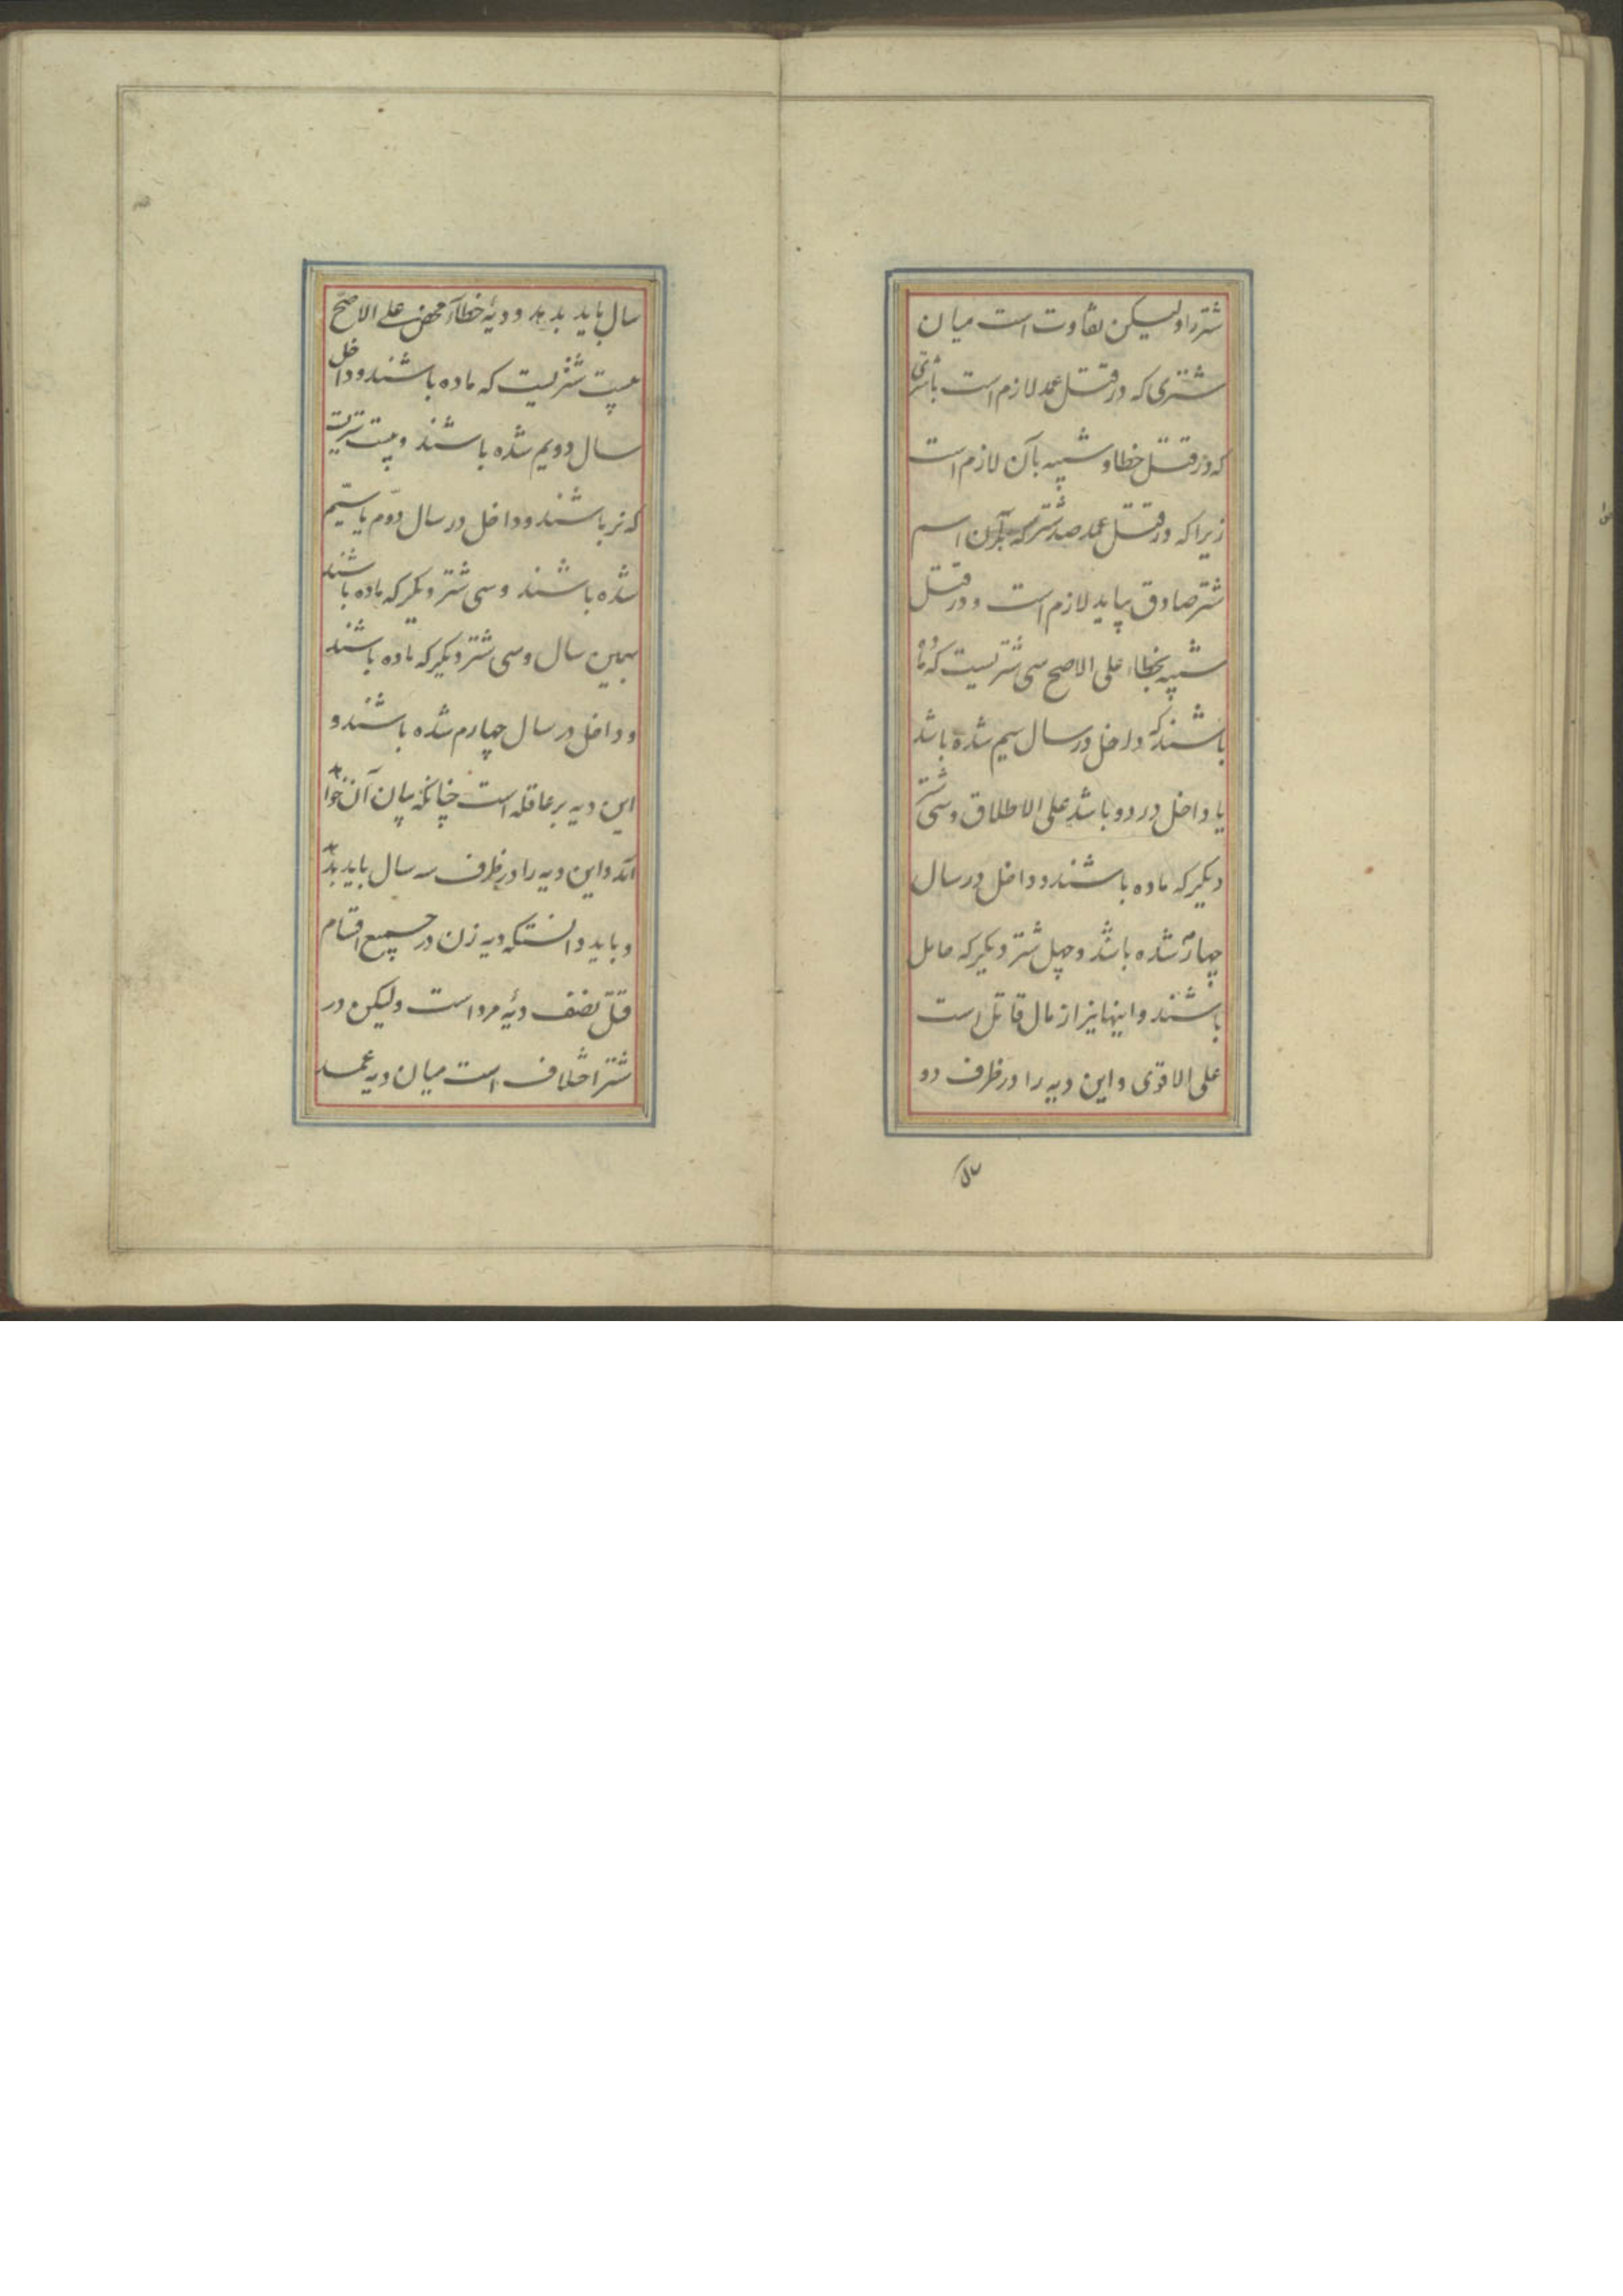 شتر را ولیکن تفاوت است میان
شتری که در قتل عمد لازم است باشتری
که در قتل خطا و شبیه بآن لازم است
زیرا که در قتل عمد صد شتر که بر آن اسم
شتر صادق بیاید لازم است و در قتل
شبیه بخطاء علی الاصح سی شتریست که ماده
باشند که داخل در سال سیم شده باشد
یا داخل در دو باشد علی الاطلاق و سی شتر
دیگر که ماده باشند و داخل در سال
چهارم شده باشد و چهل شتر دیگر که حامل
باشند و اینها نیز از مال قاتل است
علی الاقوی و این دیه را در ظرف دو
سال
سال باید بدهد و دیهٔ خطآء محض علی الاصحّ
بیست شتریست که ماده باشند و داخل
سال دویم شده باشند و بیست شتریست
که نر باشند و داخل در سال دوّم یا سیّم
شده باشند و سی شتر دیگر که ماده باشند
بهمین سال و سی شتر دیگر که ماده باشند
و داخل در سال چهارم شده باشند و
این دیه بر عاقله است چنانکه بیان آن خواهد
آمد و این دیه را در ظرف سه سال باید بدهد
و باید دانست که دیه زن در جمیع اقسام
قتل نصف دیهٔ مرد است ولیکن در
شتر اختلاف است میان دیه عمد